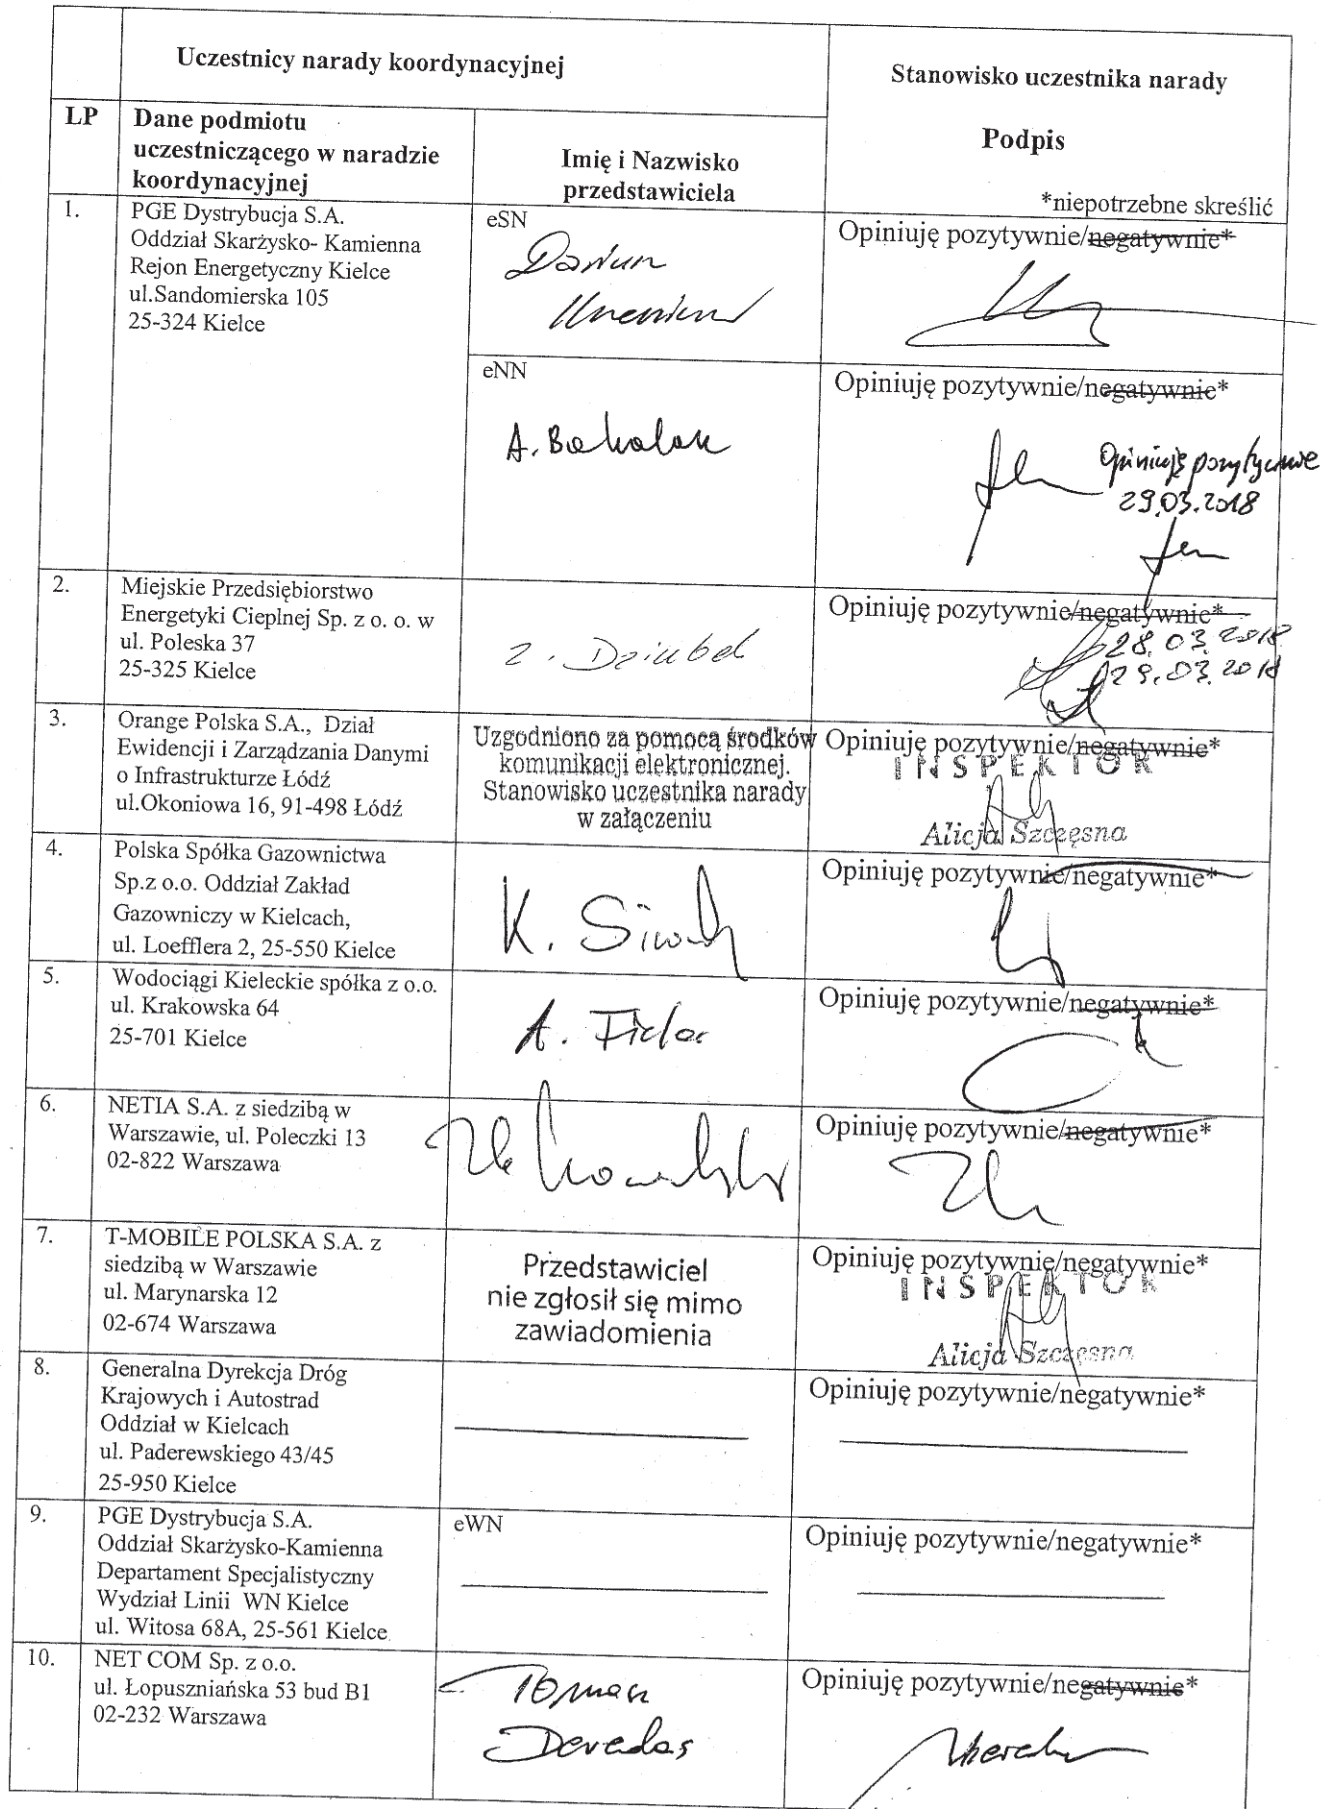 Uczestnicy narady koordynacyjnej
Stanowisko uczestnika narady
Podpis
*niepotrzebne skreślić
LP
Dane podmiotu
uczestniczącego w naradzie
koordynacyjnej
Imię i Nazwisko
przedstawiciela
1.
PGE Dystrybucja S.A.
Oddział Skarżysko- Kamienna
Rejon Energetyczny Kielce
ul.Sandomierska 105
25-324 Kielce
eSN
Opiniuję pozytywnie/negatywnie*
eNN
A. Bakalak
Opiniuję pozytywnie/negatywnie*
Opiniuję pozytywnie
29.03.2018
2.
Miejskie Przedsiębiorstwo
Energetyki Cieplnej Sp. z o. o. w
ul. Poleska 37
25-325 Kielce
Opiniuję pozytywnie/negatywnie*
28.03.2018
29.03.2018
3.
Orange Polska S.A., Dział
Ewidencji i Zarządzania Danymi
o Infrastrukturze Łódź
ul.Okoniowa 16, 91-498 Łódź
Uzgodniono za pomocą środków
komunikacji elektronicznej.
Stanowisko uczestnika narady
w załączeniu
Opiniuję pozytywnie/negatywnie*
INSPEKTOR
Alicja Szczęsna
4.
Polska Spółka Gazownictwa
Sp.z o.o. Oddział Zakład
Gazowniczy w Kielcach,
ul. Loefflera 2, 25-550 Kielce
K.
Opiniuję pozytywnie/negatywnie*
5.
Wodociągi Kieleckie spółka z o.o.
ul. Krakowska 64
25-701 Kielce
A.
Opiniuję pozytywnie/negatywnie*
6.
NETIA S.A. z siedzibą w
Warszawie, ul. Poleczki 13
02-822 Warszawa
Opiniuję pozytywnie/negatywnie*
7.
T-MOBILE POLSKA S.A. z
siedzibą w Warszawie
ul. Marynarska 12
02-674 Warszawa
Przedstawiciel
nie zgłosił się mimo
zawiadomienia
Opiniuję pozytywnie/negatywnie*
INSPEKTOR
Alicja Szczęsna
8.
Generalna Dyrekcja Dróg
Krajowych i Autostrad
Oddział w Kielcach
ul. Paderewskiego 43/45
25-950 Kielce
Opiniuję pozytywnie/negatywnie*
9.
PGE Dystrybucja S.A.
Oddział Skarżysko-Kamienna
Departament Specjalistyczny
Wydział Linii WN Kielce
ul. Witosa 68A, 25-561 Kielce
eWN
Opiniuję pozytywnie/negatywnie*
10.
NET COM Sp. z o.o.
ul. Łopuszniańska 53 bud B1
02-232 Warszawa
Tomasz
Opiniuję pozytywnie/negatywnie*